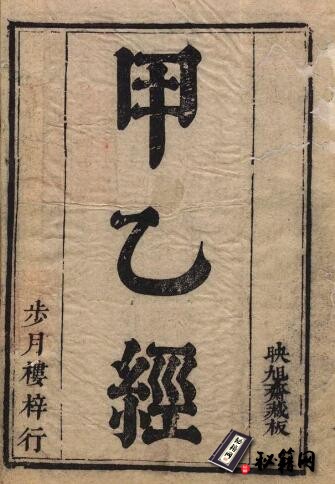 映旭齋藏板
甲乙經
步月樓梓行
秘籍网